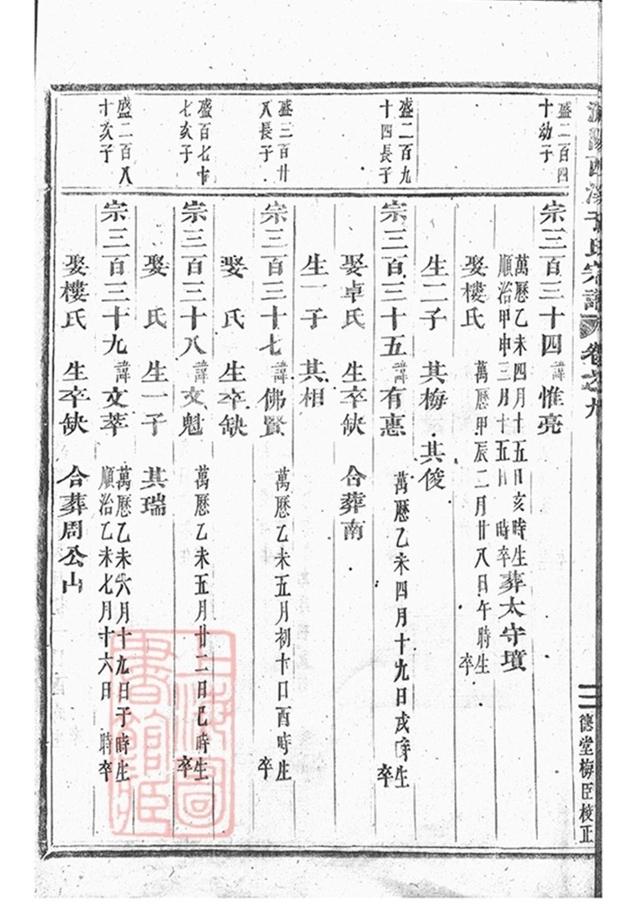 西溪
氏宗譜
卷之九
盛二百四
十幼子
宗三百三十四諱惟亮
萬曆乙未四月十五日亥時生
順治甲申三月十五日 時卒
葬太守墳
娶樓氏
萬曆甲辰二月廿八日午時生
卒
盛二百九
十四長子
生二子 其梅 其俊
宗三百三十五諱有惠
萬曆乙未四月十九日戌時生
卒
娶卓氏 生卒缺 合葬南
生一子 其相
盛三百廿
八長子
宗三百三十七諱佛賢
萬曆乙未五月初十日酉時生
卒
娶 氏 生卒缺
盛百七十
七次子
宗三百三十八諱文魁
萬曆乙未五月廿二日巳時生
卒
娶 氏 生一子 其瑞
盛二百八
十次子
宗三百三十九諱文萃
萬曆乙未六月十九日子時生
順治乙未七月十六日 時卒
娶樓氏 生卒缺 合葬周公山
德堂梅臣校正
上海圖
書館藏